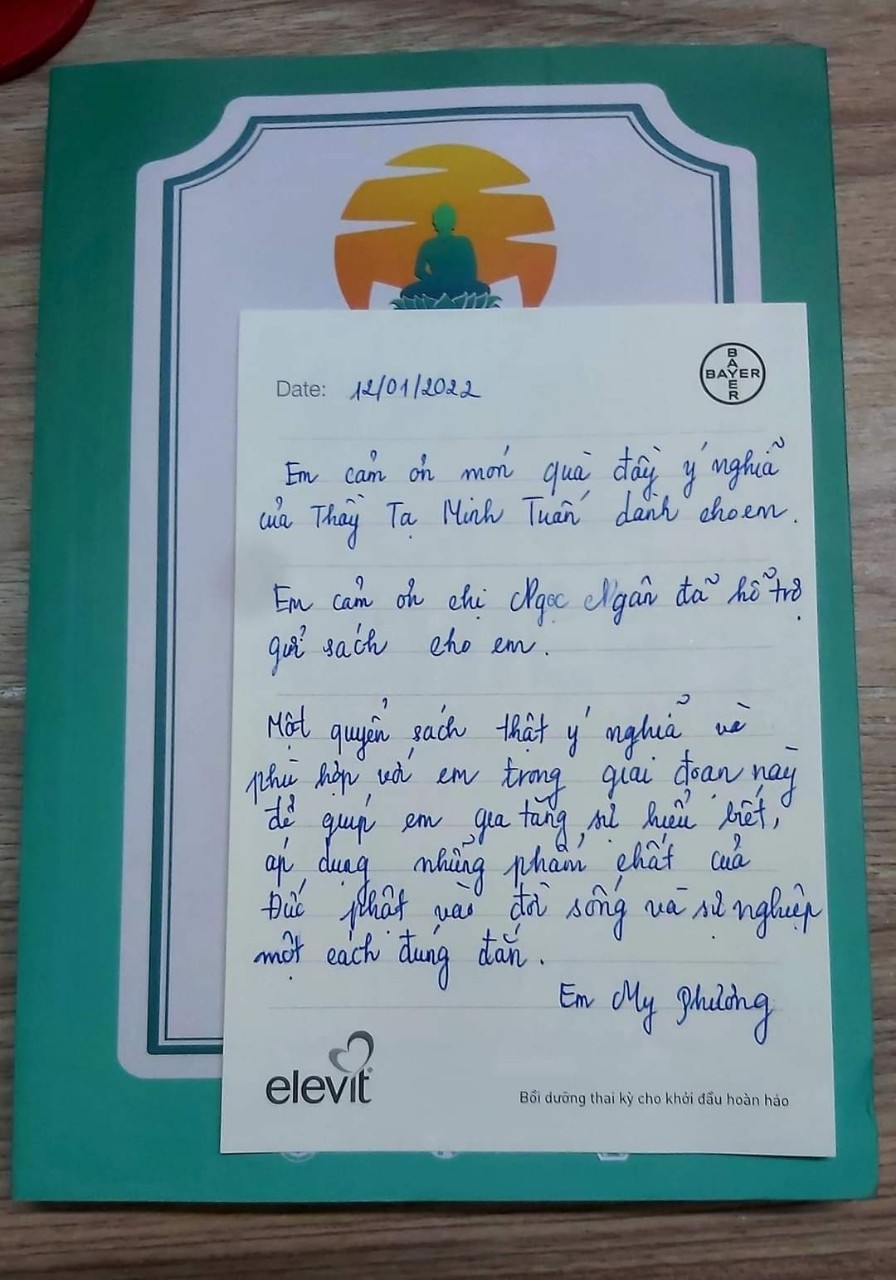 BAYER
BAYER
Date: 12/01/2022
Em cảm ơn món quà đầy ý nghĩa
của Thầy Tạ Minh Tuấn dành cho em.
Em cảm ơn chị Ngọc Ngân đã hỗ trợ
gửi sách cho em.
Một quyển sách thật ý nghĩa và
phù hợp với em trong giai đoạn này
để giúp em gia tăng sự hiểu biết,
áp dụng những phẩm chất của
Đức phật vào đời sống và sự nghiệp
một cách đúng đắn.
Em My Phương
elevit
Bồi dưỡng thai kỳ cho khởi đầu hoàn hảo